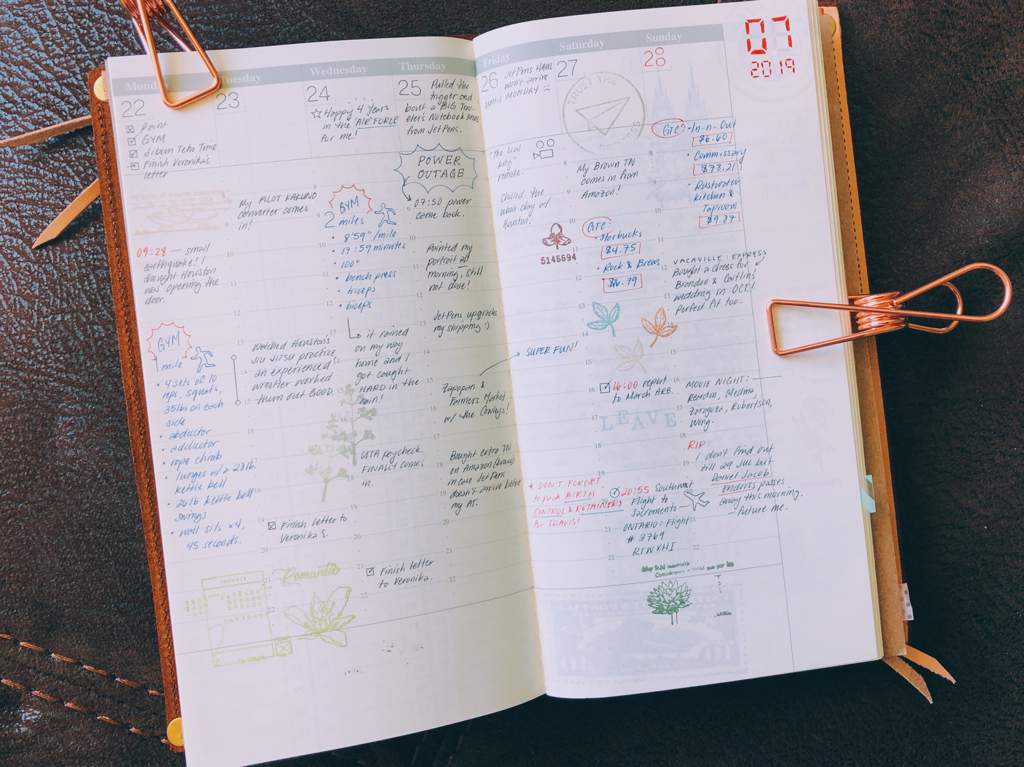 Monday
22
Paint
GYM
Album Teko Time
Finish Veronika's
letter
09:28 — small
earthquake! I
thought Houston
was opening the
door.
GYM
1 mile
• 4 sets of 10
reps, squats,
35lb on each
side
• abductor
• adductor
• rope climb
• lunges w/ 2 28lb.
kettle bell
• 26lb kettle bell
swings
• wall sits x4,
45 seconds.
Tuesday
23
My PILOT KAKUNO
converter comes
in!
Watched Houston's
Jiu Jitsu practice,
an experienced
wrestler worked
them out GOOD.
Finish letter to
Veronika S.
Romantics
Wednesday
24
Happy 4 Years
in the AIR FORCE
for me!
GYM
2 miles
• 8'59" /mile
• 17:59 minutes
• 100°
• bench press
• triceps
• biceps
it rained
on my way
home and I
got caught
HARD in the
rain!
UTA paycheck
FINALLY comes
in.
Finish letter
to Veronika.
Thursday
25
Pulled the
trigger and
bout a BIG Trav-
eler's Notebook
from JetPens.
POWER
OUTAGE
07:50 power
come back.
Painted my
portrait all
morning, still
not done!
JetPens upgrades
my shipping :)
Zapopan &
Farmers Market
w/ the Gways!
Bought extra TN
on Amazon (brown)
in case JetPens
doesn't arrive before
my AT.
Friday
26
JetPens HAUL
won't arrive
until MONDAY
movie.
Chilled the
whole day of
SUPER FUN!
* DON'T FORGET
to pack BIRTH
CONTROL & RETAINERS
for TRAVIS!
Saturday
27
TRUST THE
My Brown TN
comes in from
Amazon!
5146694
GTC:
• Starbucks
$4.75
• Rock & Brews
$16.79
16:00 report
to March ARB.
LEAVE
20:55 Southwest
Flight to
Sacramento
ONTARIO: Flight
# 3769
Sunday
28
GTC:
• In-n-Out
$6.60
• Commissary
$73.21
• Rusticated
Kitchen &
Taproom
$9.87
VACAVILLE: EXPRESS
Bought a dress for
Brendon & Caitlin's
wedding in OCT!
Perfect fit too.
MOVIE NIGHT:
Rendin, Medina,
Zaragoza, Robertson,
Wing.
RIP:
I don't find out
till 29 JUL but
Daniel Jacob
passes
away this morning.
—future me.
07
2019